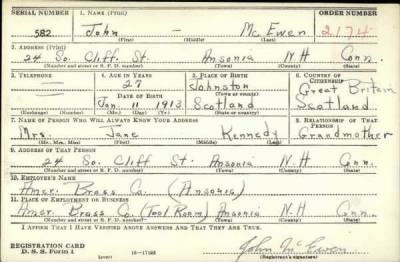 SERIAL NUMBER 1. NAME (Print) ORDER NUMBER
582 John - McEwen 2174
(First) (Middle) (Last)
2. ADDRESS (Print)
24 So. Cliff St. Ansonia N.H Conn.
(Number and street or R. F. D. number) (Town) (County) (State)
3. TELEPHONE 4. AGE IN YEARS 5. PLACE OF BIRTH 6. COUNTRY OF CITIZENSHIP
27 Johnston Great Britain
DATE OF BIRTH (Town or county)
Jan. 11 1913 Scotland Scotland
(Exchange) (Number) (Mo.) (Day) (Yr.) (State or country)
7. NAME OF PERSON WHO WILL ALWAYS KNOW YOUR ADDRESS 8. RELATIONSHIP OF THAT PERSON
Mrs. Jane Kennedy Grandmother
(Mr., Mrs., Miss) (First) (Middle) (Last)
9. ADDRESS OF THAT PERSON
24 So. Cliff St. Ansonia N-H Conn.
(Number and street or R. F. D. number) (Town) (County) (State)
10. EMPLOYER'S NAME
Amer. Brass Co. (Ansonia)
11. PLACE OF EMPLOYMENT OR BUSINESS
Amer. Brass Co. (Tool Room) Ansonia N-H Conn.
(Number and street or R. F. D. number) (Town) (County) (State)
I AFFIRM THAT I HAVE VERIFIED ABOVE ANSWERS AND THAT THEY ARE TRUE.
REGISTRATION CARD
D. S. S. Form 1 16-17105 John McEwen
(Registrant's signature)